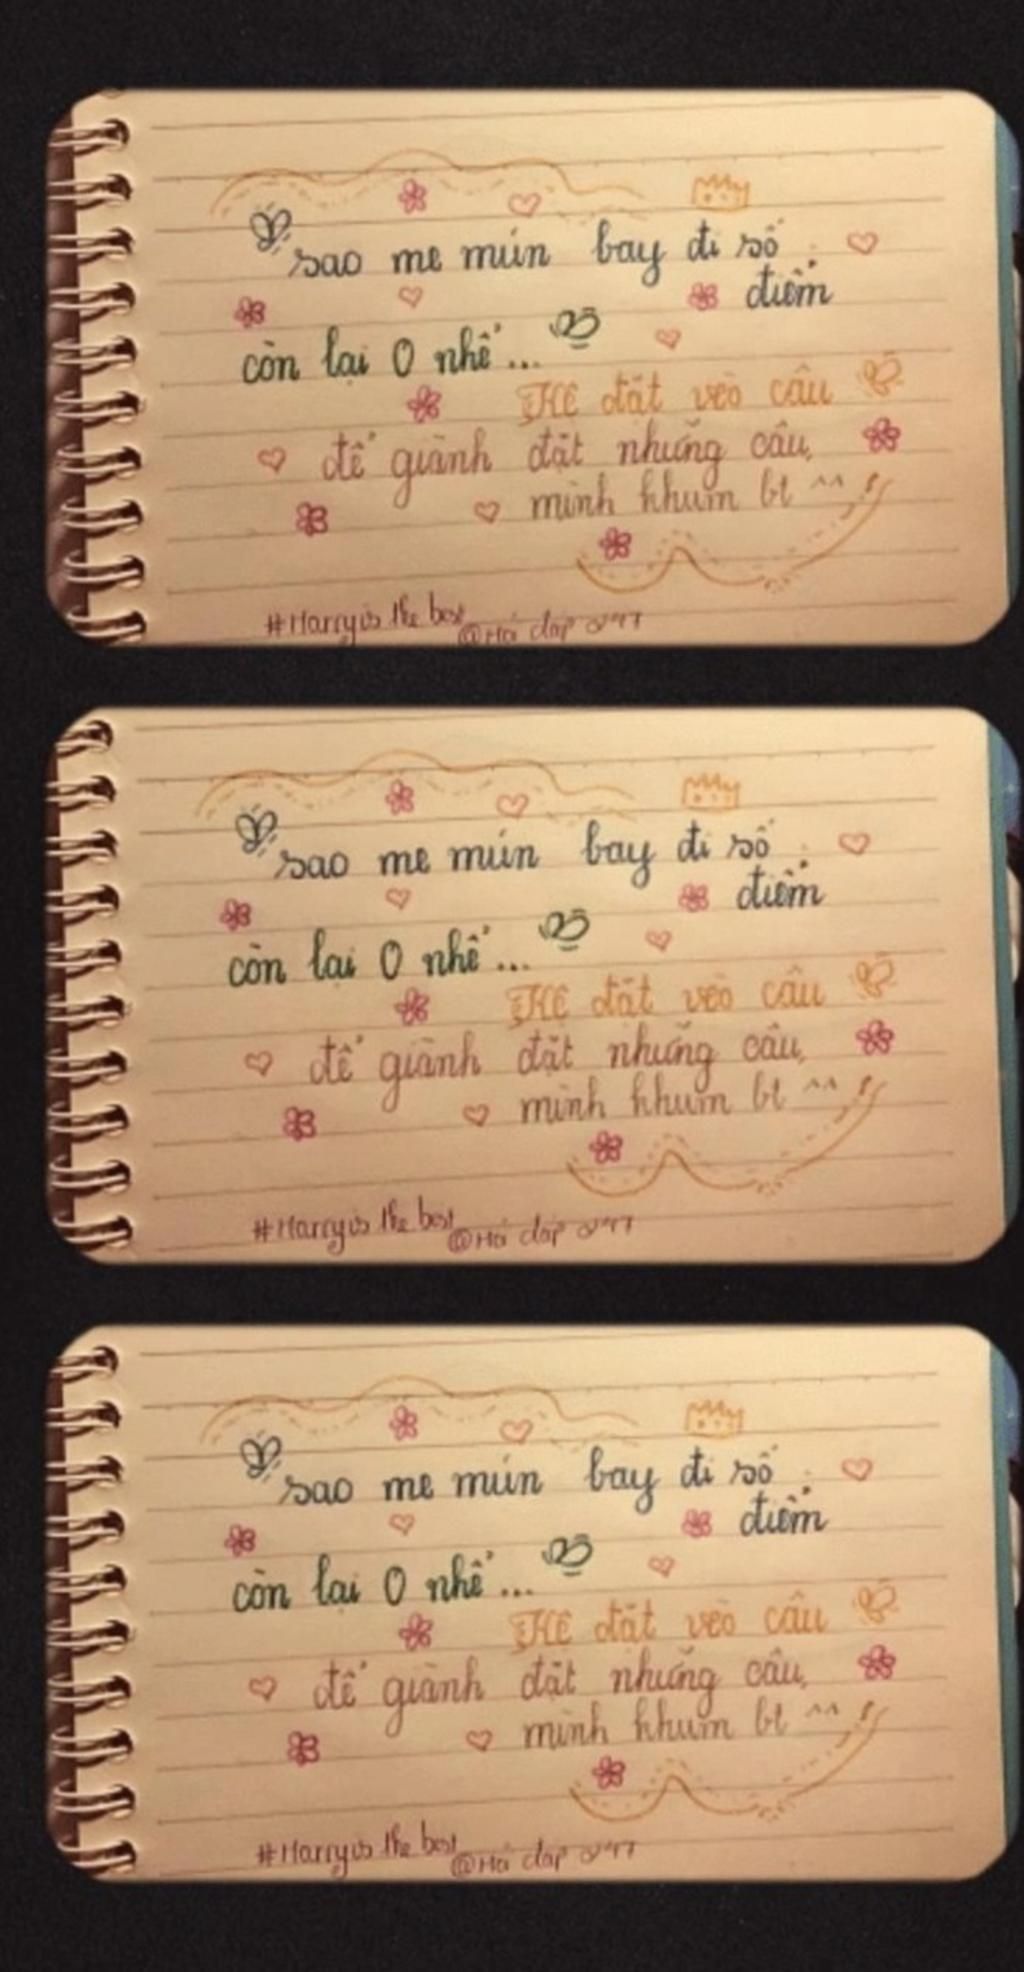 sao me mún bay đi số
điểm
còn lại 0 nhể...
Hê đặt vèo câu
để giành đặt những câu,
mình khum bt ^^
#Harry is the best
@Hỏi đáp
sao me mún bay đi số
điểm
còn lại 0 nhể...
Hê đặt vèo câu
để giành đặt những câu,
mình khum bt ^^
#Harry is the best
@Hỏi đáp
sao me mún bay đi số
điểm
còn lại 0 nhể...
Hê đặt vèo câu
để giành đặt những câu,
mình khum bt ^^
#Harry is the best
@Hỏi đáp